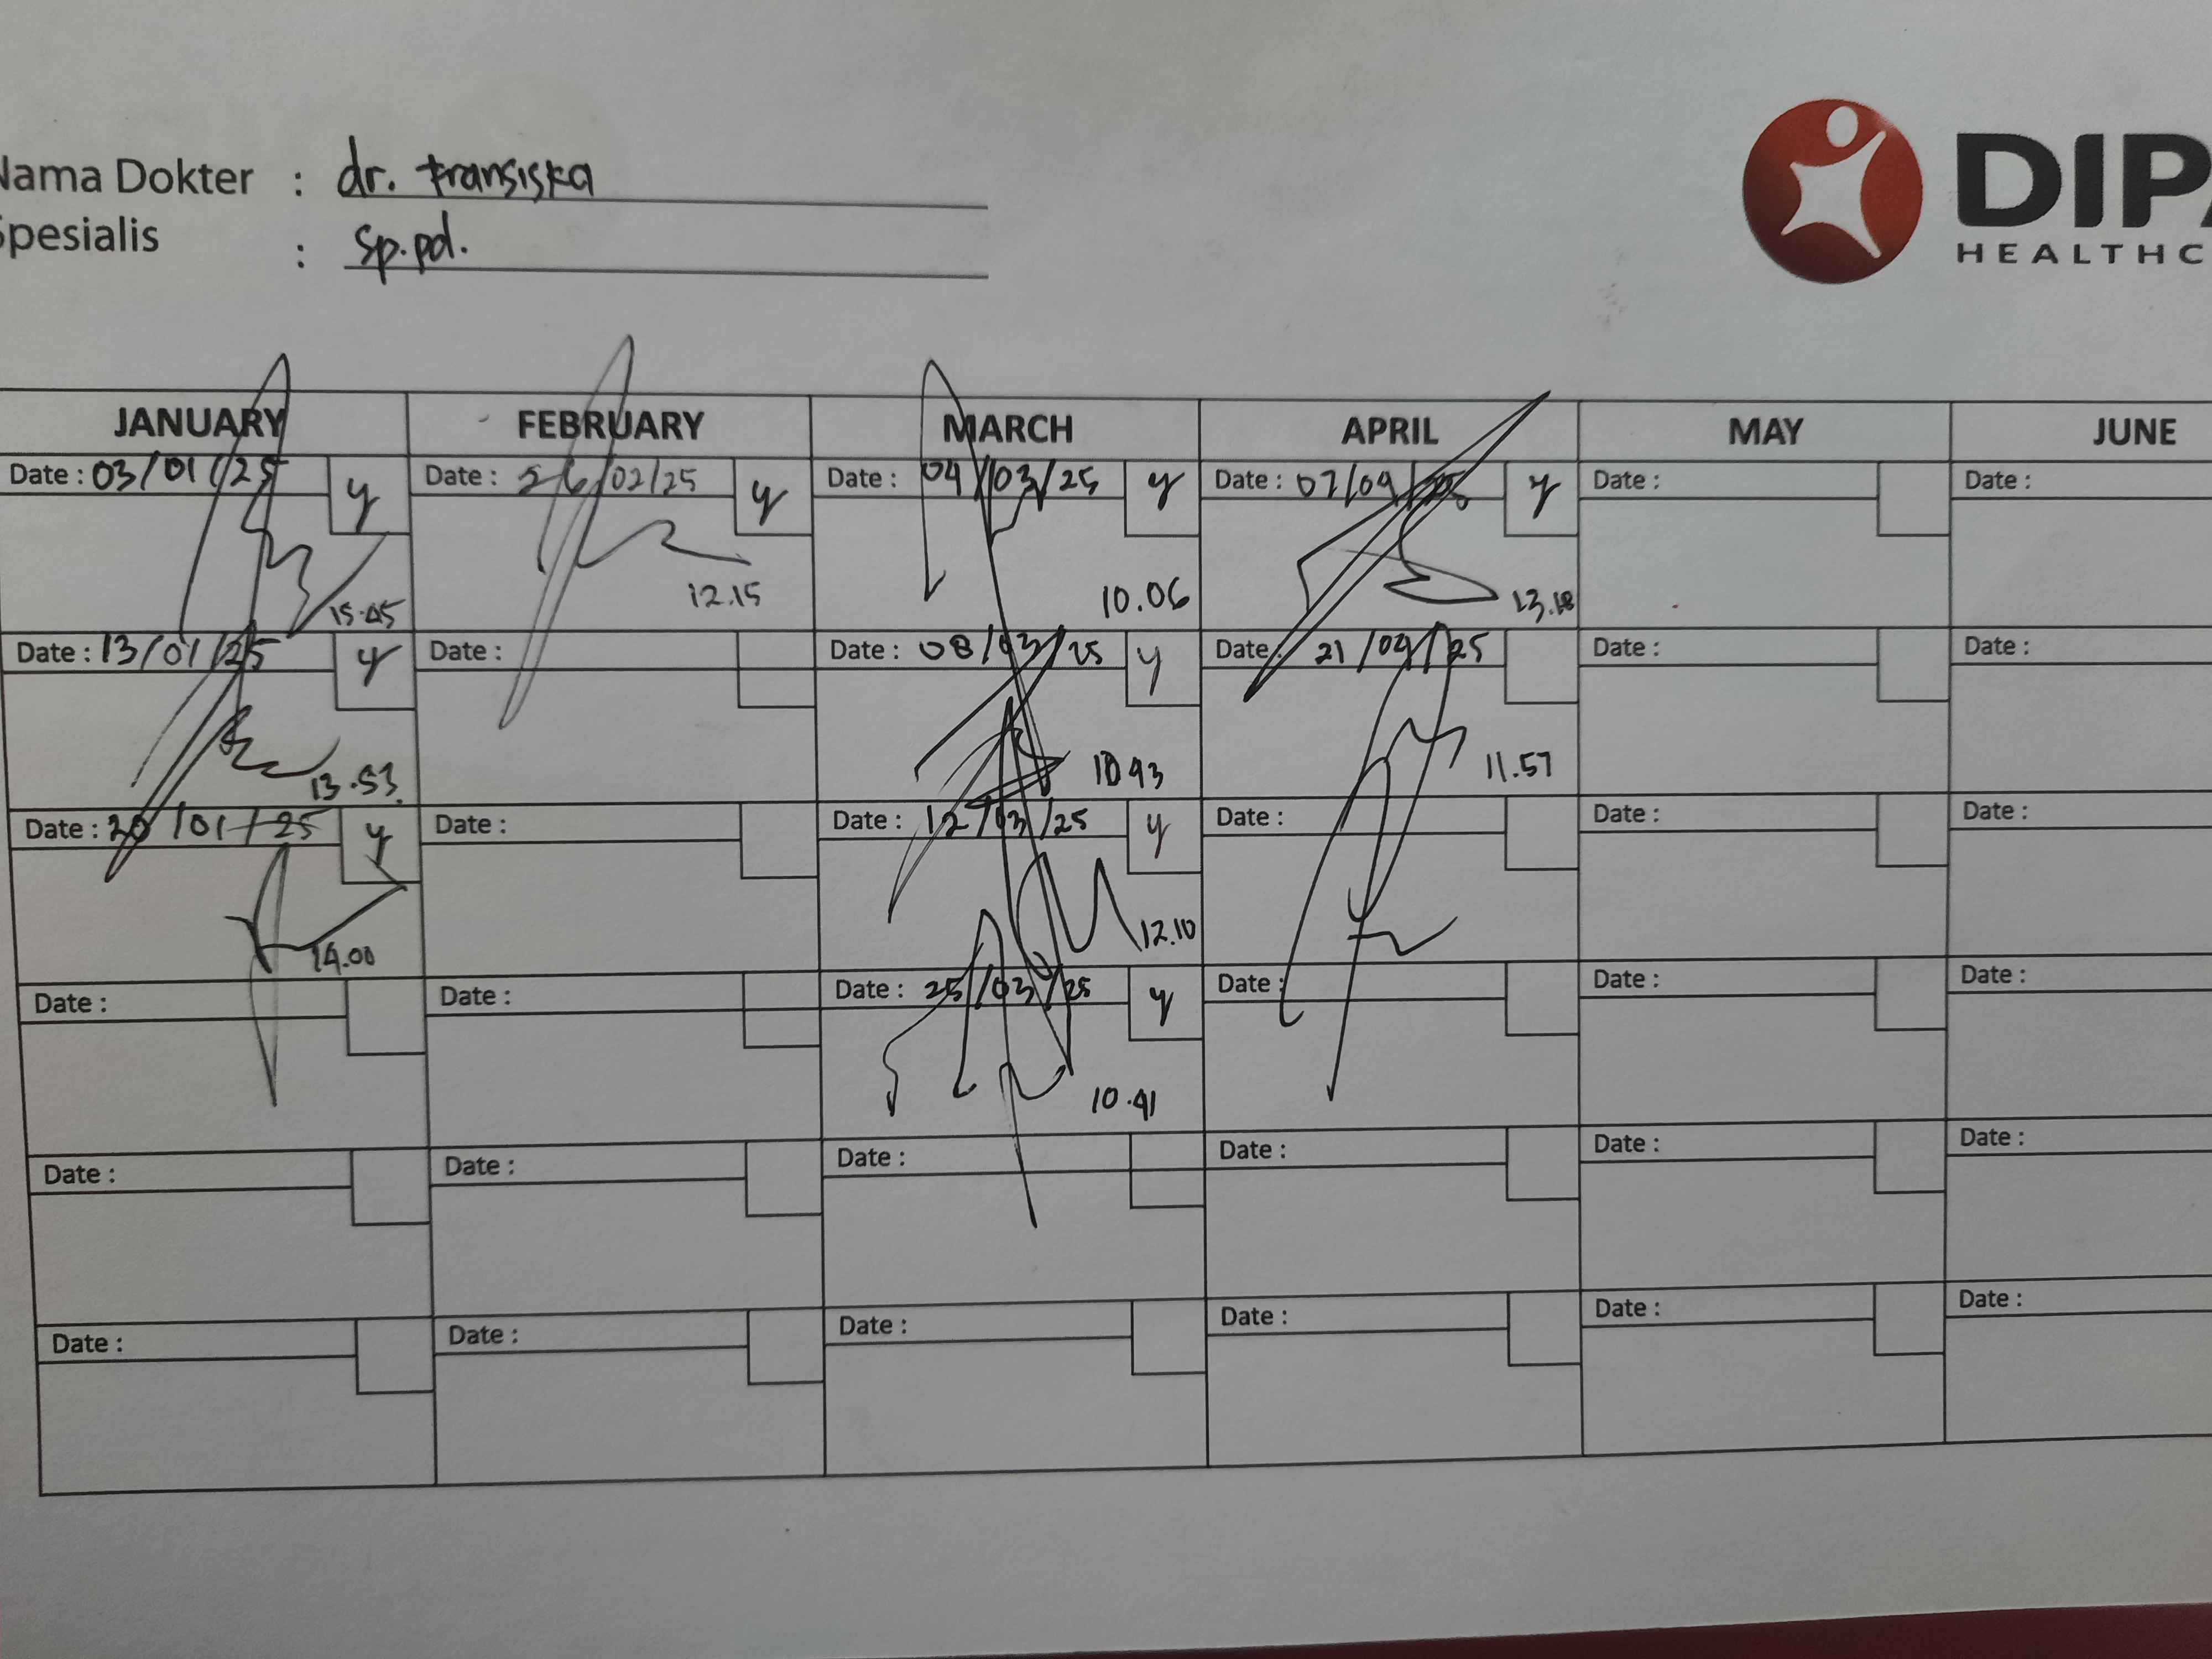 Nama Dokter : dr. fransiska
Spesialis : sp.pd.
DIPA
HEALTHC
JANUARY FEBRUARY MARCH APRIL MAY JUNE
Date : 03/01/25 y Date : 26/02/25 y Date : 04/03/25 y Date : 07/04/25 y Date : Date :
15.45 12.15 10.06 13.18
Date : 13/01/25 y Date : Date : 08/03/25 y Date : 21/04/25 Date : Date :
13.53 10.43 11.57
Date : 20/01/25 y Date : Date : 12/03/25 y Date : Date : Date :
14.00 12.10
Date : Date : Date : 25/03/25 y Date : Date : Date :
10.41
Date : Date : Date : Date : Date : Date :
Date : Date : Date : Date : Date : Date :